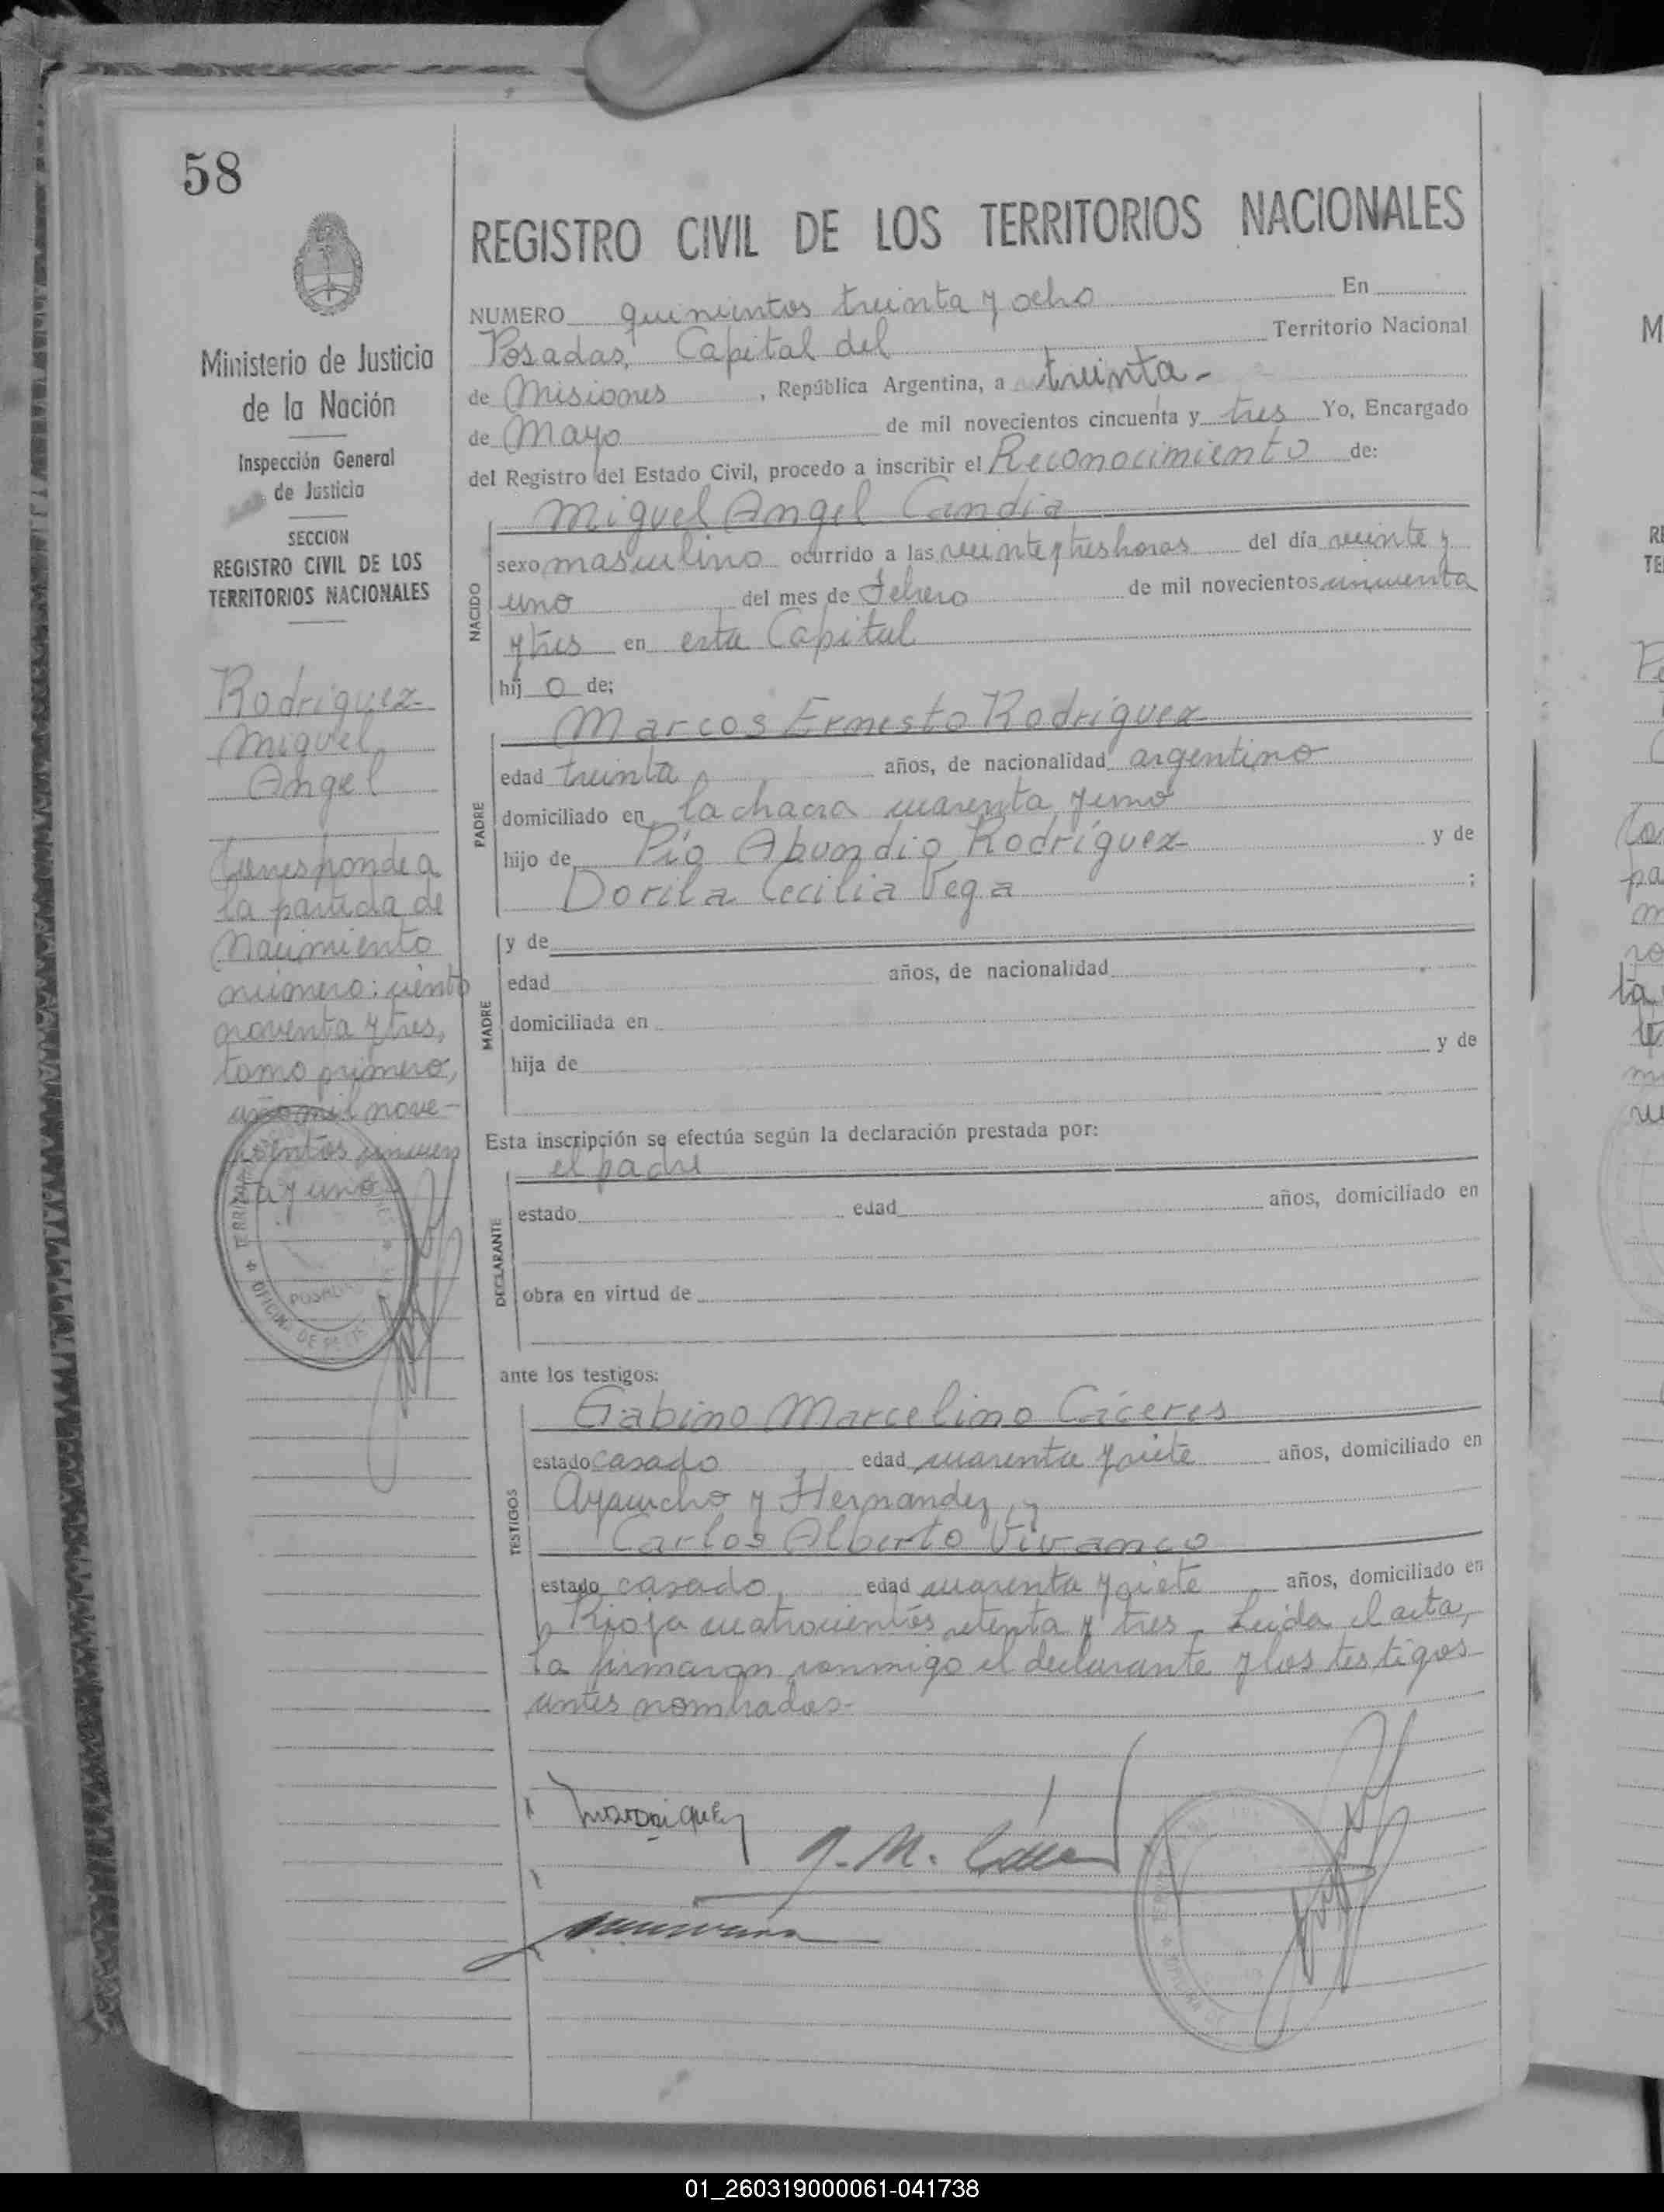 58
Ministerio de Justicia
de la Nación
Inspección General
de Justicia
SECCION
REGISTRO CIVIL DE LOS
TERRITORIOS NACIONALES
Rodríguez
Miguel
Angel
Corresponde a
la partida de
Nacimiento
número: ciento
noventa y tres,
tomo primero,
año mil nove-
cientos cincuen
ta y uno
REGISTRO CIVIL DE LOS TERRITORIOS NACIONALES
NUMERO quinientos treinta y ocho En
Posadas, Capital del Territorio Nacional
de Misiones, República Argentina, a treinta-
de Mayo de mil novecientos cincuenta y tres Yo, Encargado
del Registro del Estado Civil, procedo a inscribir el Reconocimiento de:
NACIDO
Miguel Angel Candia
sexo masculino ocurrido a las veinte y tres horas del día veinte y
uno del mes de Febrero de mil novecientos cincuenta
y tres en esta Capital
hijo de;
PADRE
Marcos Ernesto Rodríguez
edad treinta años, de nacionalidad argentino
domiciliado en la chacra cuarenta y uno
hijo de Pío Abundio Rodríguez y de
Dorila Cecilia Vega ;
MADRE
y de
edad años, de nacionalidad
domiciliada en
hija de y de
Esta inscripción se efectúa según la declaración prestada por:
DECLARANTE
el padre
estado edad años, domiciliado en
obra en virtud de
ante los testigos:
TESTIGOS
Gabino Marcelino Cáceres
estado casado edad cuarenta y siete años, domiciliado en
Ayacucho y Hernandez, y
Carlos Alberto Vivanco
estado casado, edad cuarenta y siete años, domiciliado en
Rioja cuatrocientos setenta y tres. Leída el acta,
la firmaron conmigo el declarante y los testigos
antes nombrados-
01_260319000061-041738